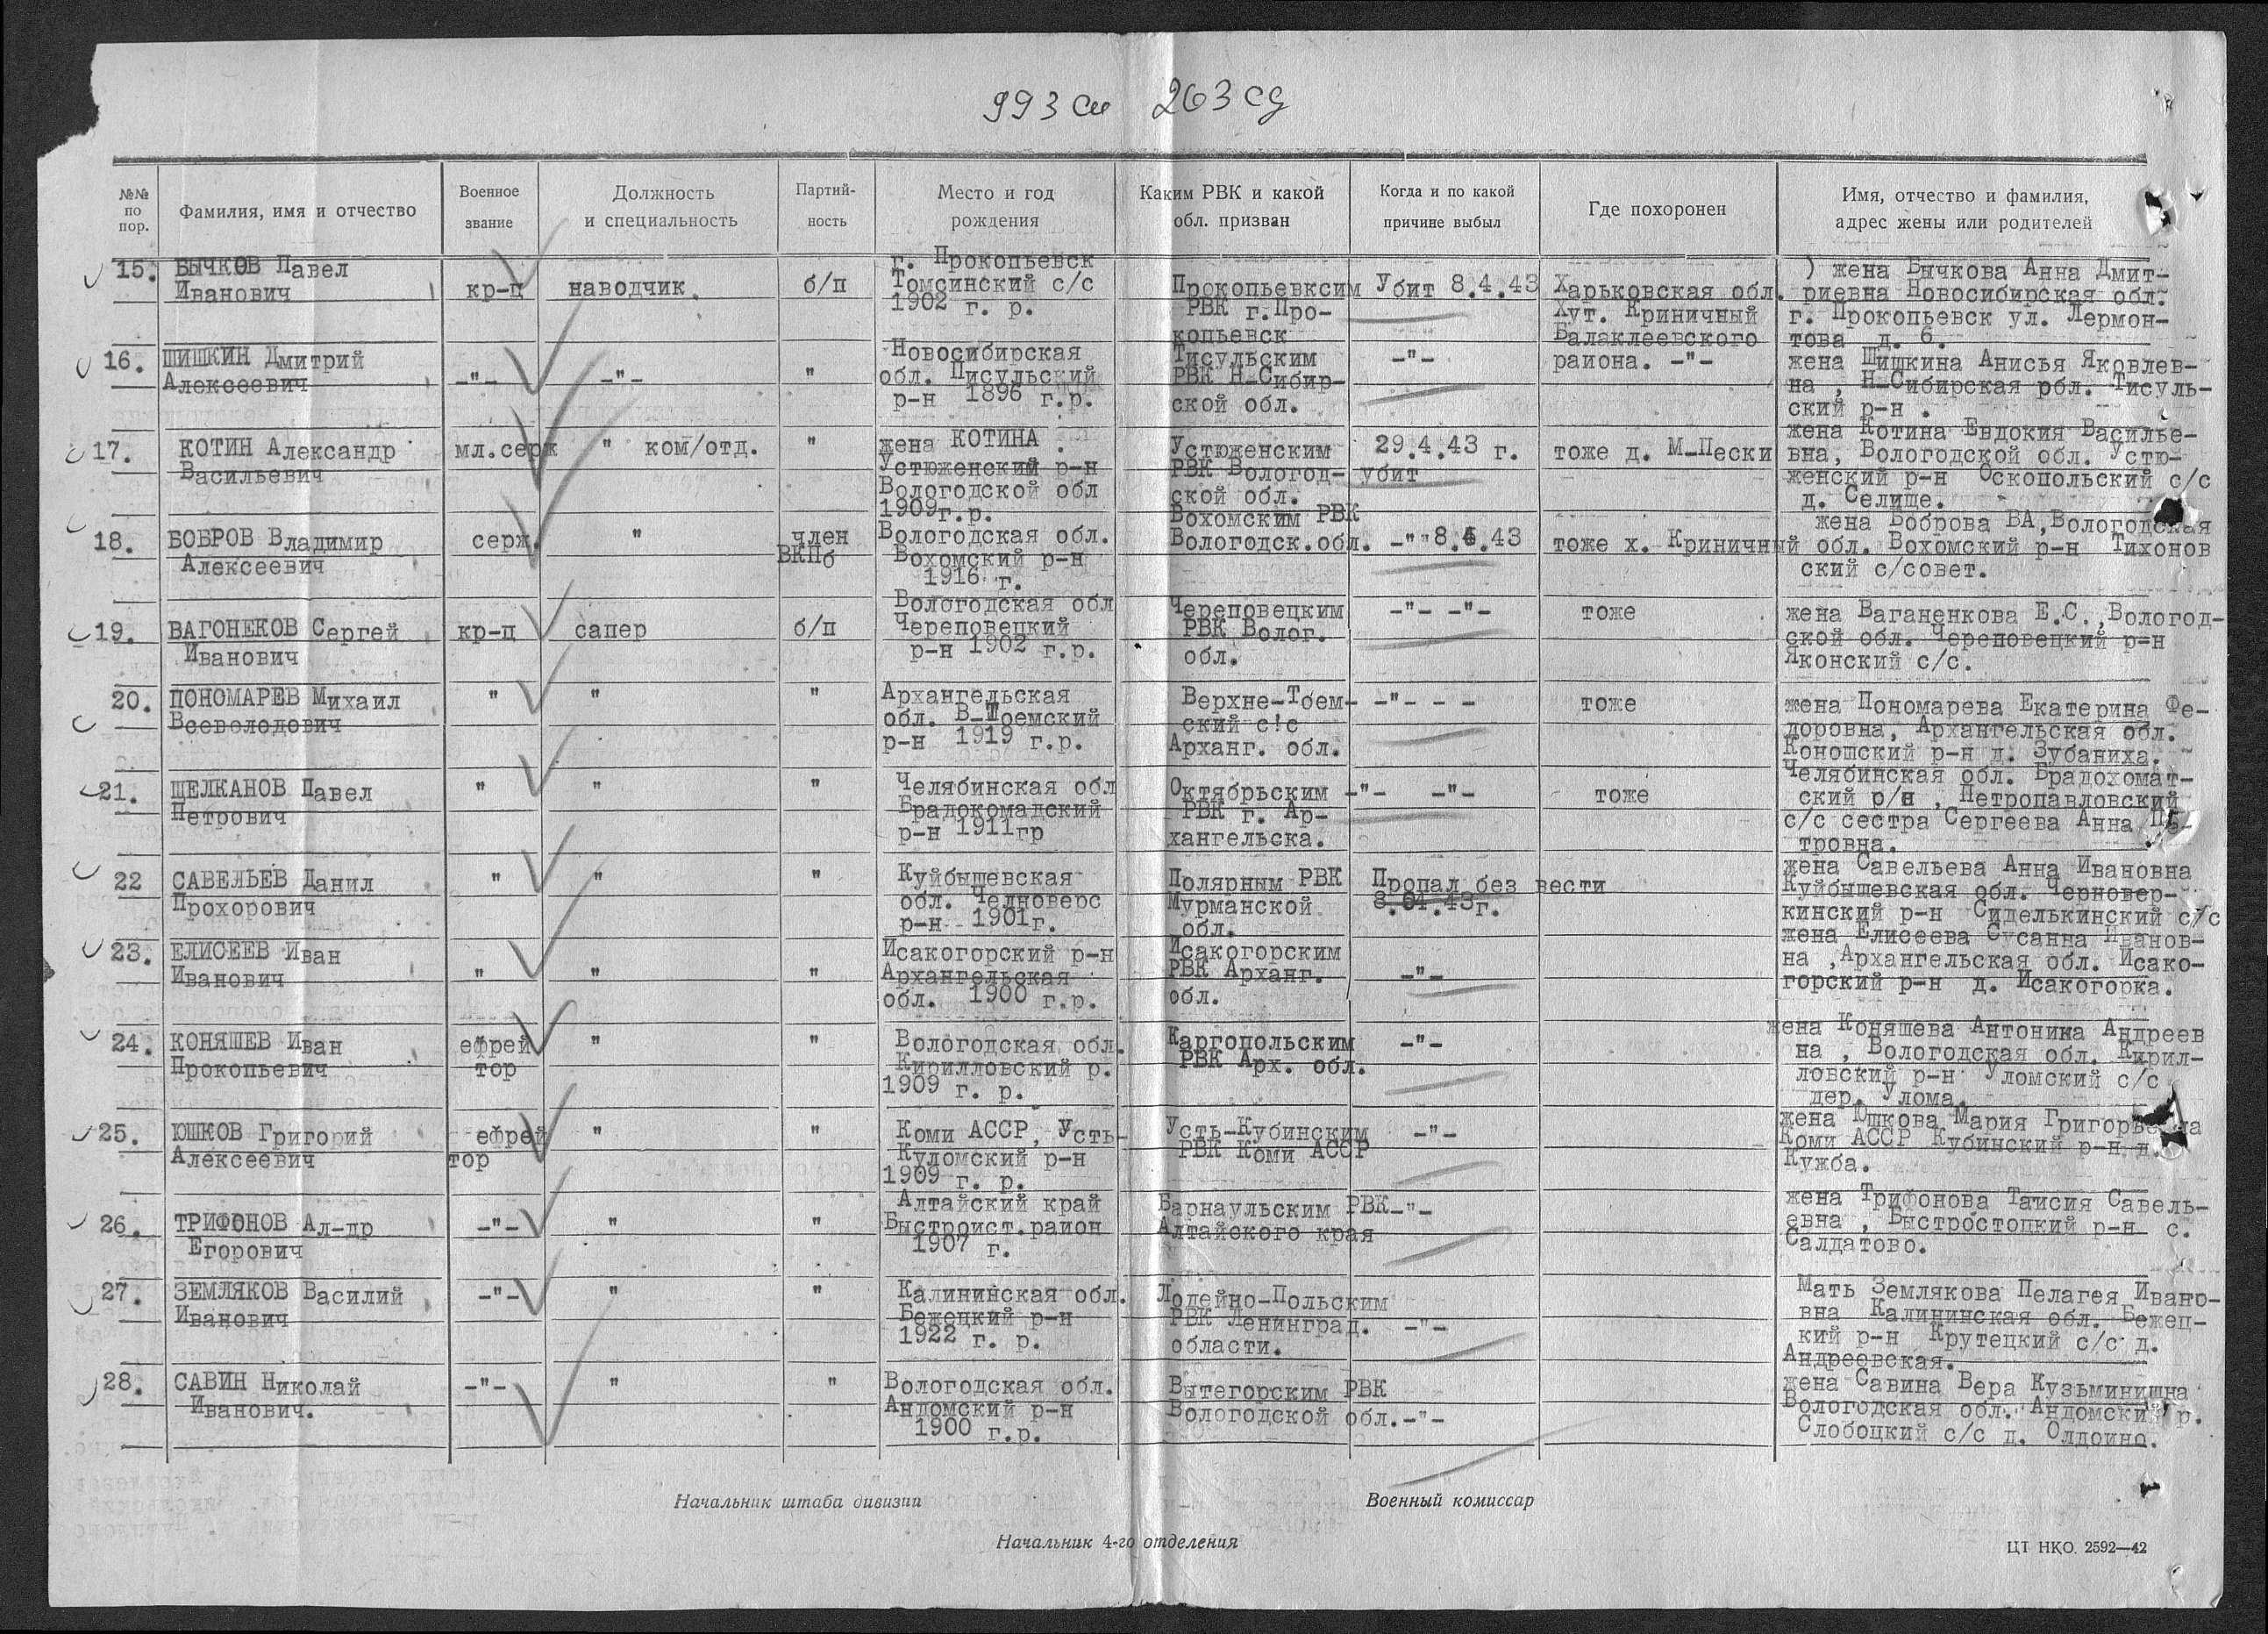 993 сп 263 сд
№№ по пор.
Фамилия, имя и отчество
Военное звание
Должность и специальность
Партий-ность
Место и год рождения
Каким РВК и какой обл. призван
Когда и по какой причине выбыл
Где похоронен
Имя, отчество и фамилия, адрес жены или родителей
15. БЫЧКОВ Павел
Иванович
кр-ц
наводчик.
б/п
г. Прокопьевск
Томсинский с/с
1902 г. р.
Прокопьевксим
РВК г.Про-
копьевск
Убит 8.4.43
Харьковская обл.
Хут. Криничный
Балаклеевского
района.
) жена Бычкова Анна Дмит-
риевна Новосибирская обл.
г. Прокопьевск ул. Лермон-
това д. 6.
16. ШИШКИН Дмитрий
Алексеевич
-"-
-"-
"
Новосибирская
обл. Писульский
р-н 1896 г.р.
Тисульским
РВК Н-Сибир-
ской обл.
-"-
-"-
жена Шишкина Анисья Яковлев-
на , Н-Сибирская обл. Тисуль-
ский р-н .
17. КОТИН Александр
Васильевич
мл.серж
" ком/отд.
"
жена КОТИНА .
Устюженский р-н
Вологодской обл
1909г.р.
Устюженским
РВК Вологод-
ской обл.
29.4.43 г.
убит
тоже д. М-Пески
жена Котина Евдокия Василье-
вна, Вологодской обл. Устю-
женский р-н Оскопольский с/с
д. Селище.
18. БОБРОВ Владимир
Алексеевич
серж.
"
член
ВКПб
Вологодская обл.
Вохомский р-н
1916 г.
Вохомским РВК
Вологодск.обл.
-"" 8.4.43
тоже х. Криничный
жена Боброва ВА,Вологодская
обл. Вохомский р-н Тихонов
ский с/совет.
19. ВАГОНЕКОВ Сергей
Иванович
кр-ц
сапер
б/п
Вологодская обл
Череповецкий
р-н 1902 г.р.
Череповецким
РВК Волог.
обл.
-"- -"-
тоже
жена Ваганенкова Е.С.,Вологод-
ской обл. Череповецкий р-н
Яконский с/с.
20. ПОНОМАРЕВ Михаил
Всеволодович
"
"
"
Архангельская
обл. В-Тоемский
р-н 1919 г.р.
Верхне-Тоем-
ский с!с
Арханг. обл.
-"- - -
тоже
жена Пономарева Екатерина Фе-
доровна, Архангельская обл.
Коношский р-н д. Зубаниха.
21. ЩЕЛКАНОВ Павел
Петрович
"
"
"
Челябинская обл
Брадокомадский
р-н 1911гр
Октябрьским
РВК г. Ар-
хангельска.
-"- -"-
тоже
Челябинская обл. Брадохомат-
ский р/н , Петропавловский
с/с сестра Сергеева Анна Пе-
тровна.
22 САВЕЛЬЕВ Данил
Прохорович
"
"
"
Куйбышевская
обл. Челноверс
р-н 1901г.
Полярным РВК
Мурманской
обл.
Пропал без вести
8.04.43г.
жена Савельева Анна Ивановна
Куйбышевская обл. Черновер-
кинский р-н Сиделькинский с/с
23. ЕЛИСЕЕВ Иван
Иванович
"
"
"
Исакогорский р-н
Архангельская
обл. 1900 г.р.
Исакогорским
РВК Арханг.
обл.
-"-
жена Елисеева Сусанна Иванов-
на ,Архангельская обл. Исако-
горский р-н д. Исакогорка.
24. КОНЯШЕВ Иван
Прокопьевич
ефрей
тор
"
"
Вологодская обл.
Кирилловский р.
1909 г. р.
Каргопольским
РВК Арх. обл.
-"-
жена Коняшева Антонина Андреев
на , Вологодская обл. Кирил-
ловский р-н Уломский с/с
дер. Улома.
25. ЮШКОВ Григорий
Алексеевич
ефрей
тор
"
"
Коми АССР, Усть-
Куломский р-н
1909 г. р.
Усть-Кубинским
РВК Коми АССР
-"-
жена Юшкова Мария Григорьевна
Коми АССР Кубинский р-н д.
Кужба.
26. ТРИФОНОВ Ал-др
Егорович
-"-
"
"
Алтайский край
Быстроист.район
1907 г.
Барнаульским РВК
Алтайского края
-"-
жена Трифонова Таисия Савель-
евна , Быстростоцкий р-н с.
Салдатово.
27. ЗЕМЛЯКОВ Василий
Иванович
-"-
"
"
Калининская обл.
Бежецкий р-н
1922 г. р.
Лодейно-Польским
РВК Ленинград.
области.
-"-
Мать Землякова Пелагея Ивано-
вна Калининская обл. Бежец-
кий р-н Крутецкий с/с д.
Андреевская.
28. САВИН Николай
Иванович.
-"-
"
"
Вологодская обл.
Андомский р-н
1900 г.р.
Вытегорским РВК
Вологодской обл.
-"-
жена Савина Вера Кузьминишна
Вологодская обл. Андомский р.
Слобоцкий с/с д. Олдоино.
Начальник штаба дивизии
Военный комиссар
Начальник 4-го отделения
ЦТ НКО. 2592—42